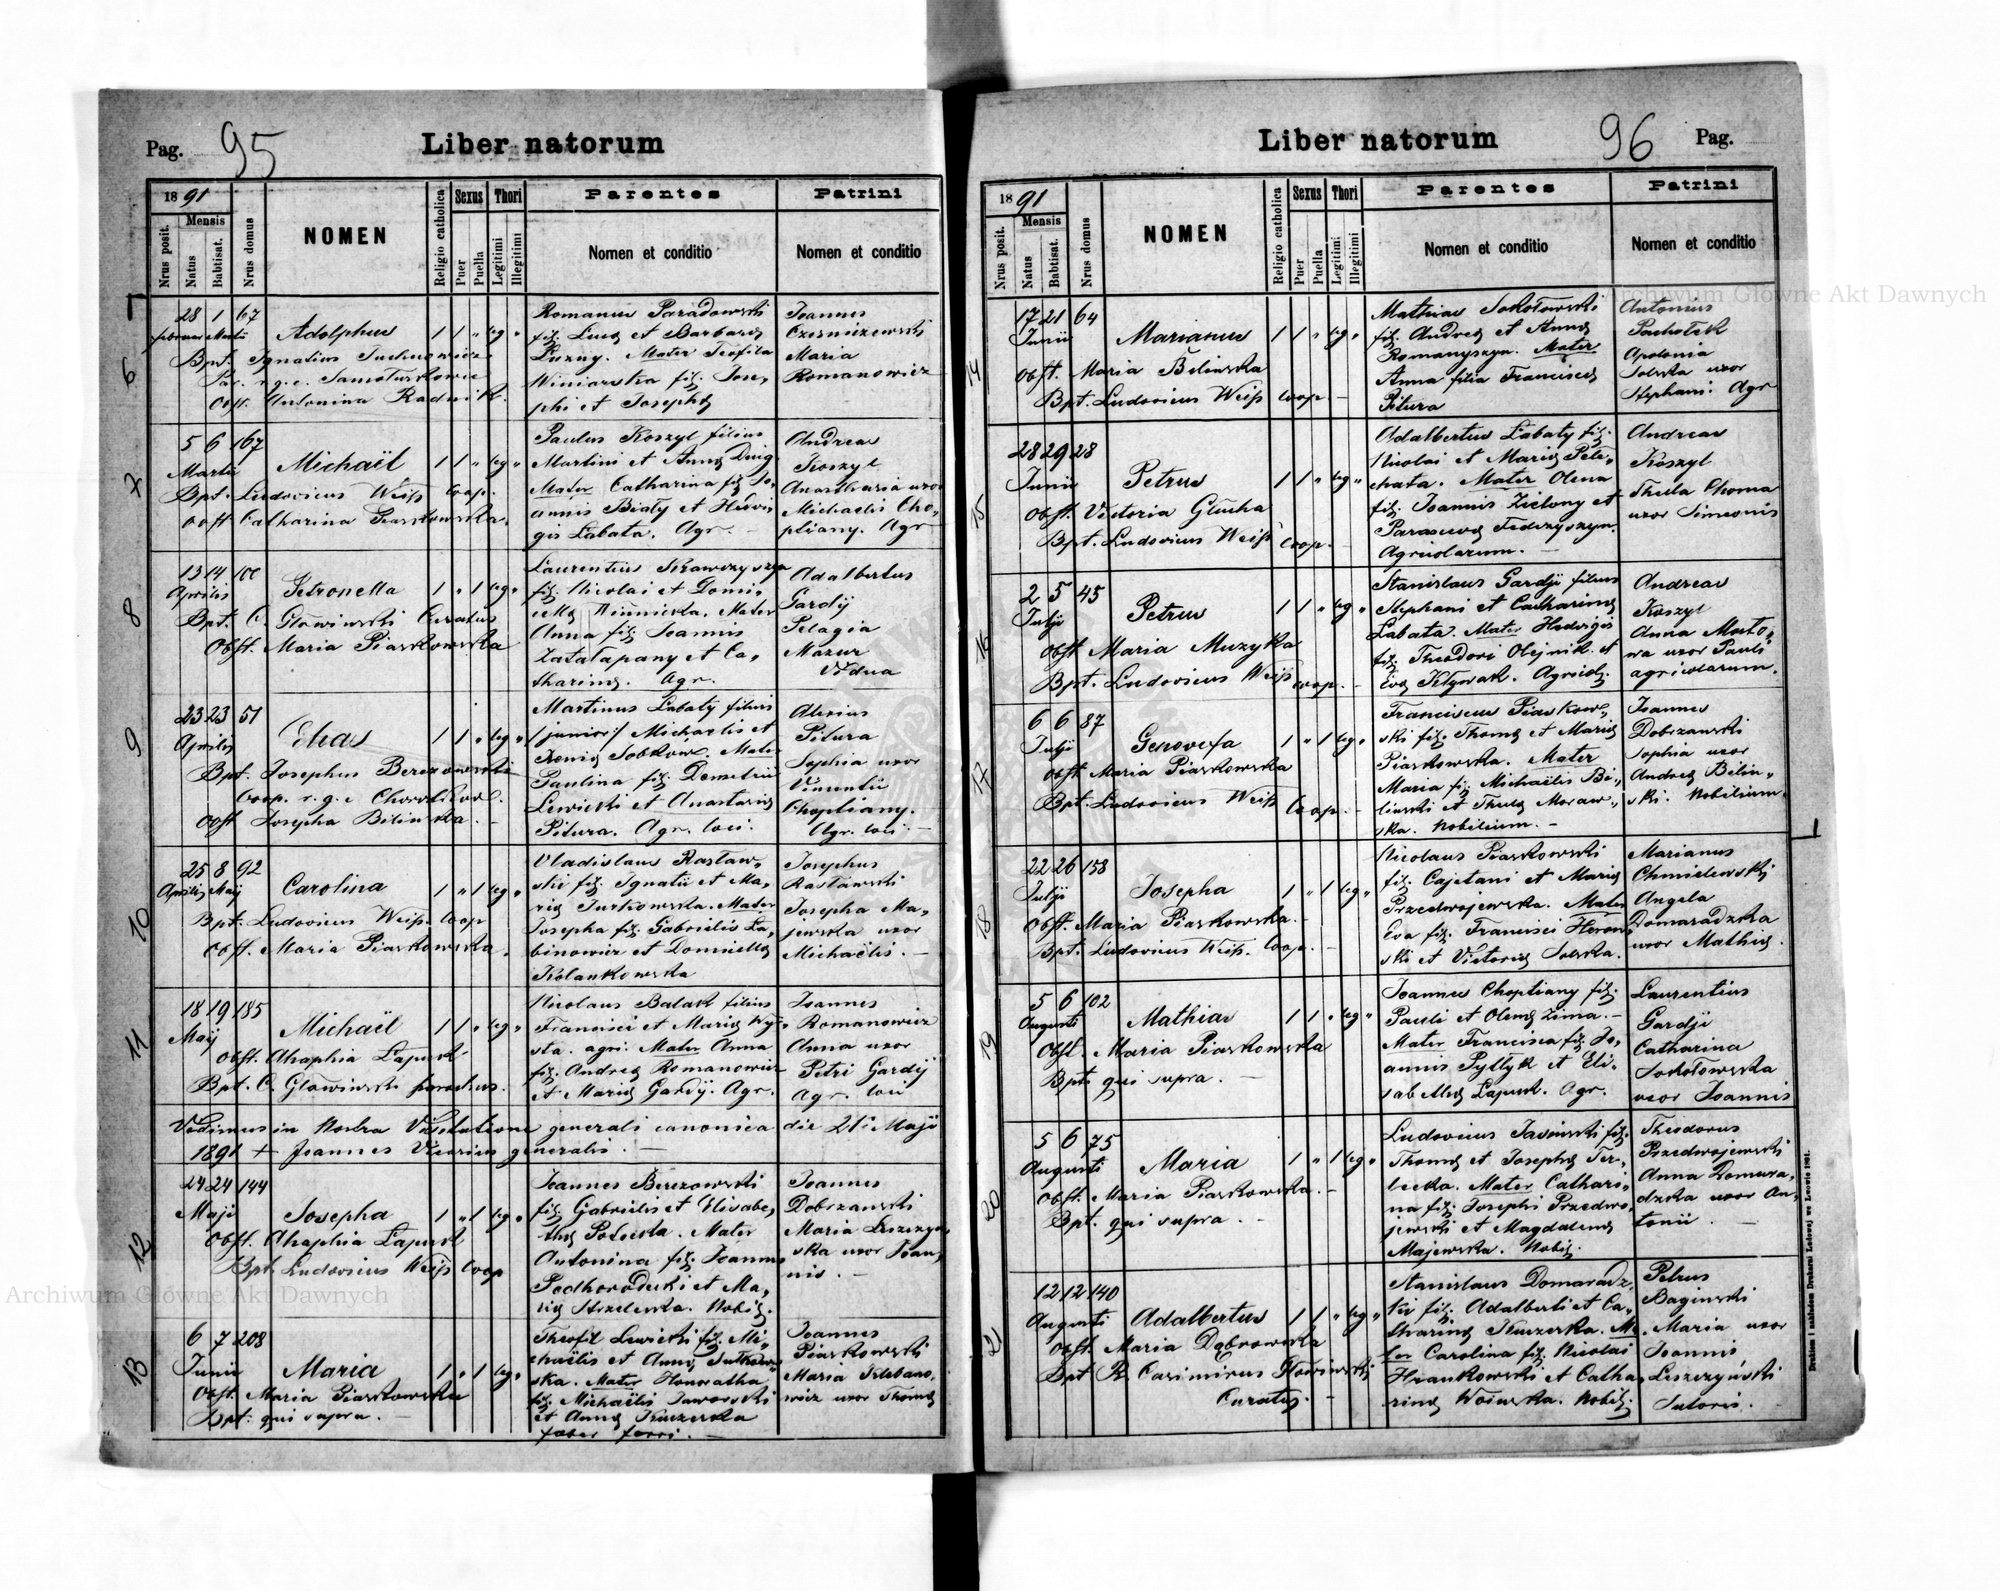 Pag. 95
Liber natorum
1891
Mensis
Nrus posit.
Natus
Babtisat.
Nrus domus
NOMEN
Religio catholica
Sexus
Puer
Puella
Thori
Legitimi
Illegitimi
Parentes
Nomen et conditio
Patrini
Nomen et conditio
6
28 1 67
Adolphus 1 1 " leg "
Bpt. Ignatius
Par. r. g. c.
Obst. Antonina Radnik.
Romanus Paradowski
filg. Lucg et Barbarg
Luzny. Mater Teofila
Winiarska filg. Jose,
phi et Josephg
Joannes
Czerniszewski
Maria
Romanowicz
7
5 6 167
Martii Michaël 1 1 " leg "
Bpt. Ludovicus Weiß Coop.
Obst Catharina Piaskowska.
Paulus Koszyl filius
Martini et Anng
Mater Catharina filg. Jo,
annis Biały et Hedvi
gis Labata. Agr.
Andreas
Koszyl
Anastharia uxor
Michaelis Cho,
pliany. Agr
8
13 14 100
Aprilis Petronella 1 " 1 leg "
Bpt. C. Głowinski Curatus
Obst. Maria Piaskowska
Laurentius Krawczyszyn
filg. Nicolai et Domi,
cellg Winnicka. Mater
Anna filg. Joannis
Zatałapany et Ca,
tharing. Agr.
Adalbertus
Gardÿ
Pelagia
Mazur
Vidua
9
23 23 51
Aprilis Elias 1 1 " leg "
Bpt. Josephus Berezowski
Coop. r. g. c
Obst Josepha Bilinska.
Martinus Labaty filius
/junior/ Michaelis et
Xenig Sobkow. Mater
Paulina filg. Demetrii
Lewicki et Anastasig
Pitura. Agr. loci.
Alexius
Pitura
Sophia uxor
Vincentii
Chopliany.
Agr. loci.
10
25 8 92
Aprilis Maij Carolina 1 " 1 leg "
Bpt. Ludovicus Weiß. Coop
Obst. Maria Piaskowska.
Vladislaus Rastaw,
ski filg. Ignatii et Ma,
rig Turkowska. Mater
Josepha filg. Gabrielis La,
binowicz et Domicellg
Kolankowska
Josephus
Rastawski
Josepha Ma,
jewska uxor
Michaëlis.
11
18 19 185
Maij Michaël 1 1 " leg "
Obst. Ahaphia Łapusk
Bpt. C. Głowinski parochus.
Nicolaus Balak filius
Francisci et Marig Wy,
sta. agri. Mater Anna
filg. Andreg Romanowicz
et Marig Gardÿ. Agr.
Joannes
Romanowicz
Anna uxor
Petri Gardÿ
Agr. loci
Vidimus in Nostra Visitatione generali canonica die 21 Maji
1891 + Joannes Vicarius generalis.
12
24 24 144
Maji Josepha 1 " 1 leg "
Obst. Ahaphia Łapusk
Bpt Ludovicus Weiß Coop
Joannes Berezowski
filg. Gabrielis et Elisabe,
thg Potocka. Mater
Antonina filg. Joannis
Podhorodecki et Ma,
rig Strzelecka. Nobilg.
Joannes
Dobrzanski
Maria Leszczyn,
ska uxor Joan,
nis.
13
6 7 208
Junii Maria 1 " 1 leg "
Obst. Maria Piaskowska
Bpt: qui supra.
Theofil Lewicki filg. Mi,
chaëlis et Anng Sutkow,
ska. Mater Honoratha
filg. Michaëlis Jaworski
et Anng Kuczerka
faber ferri.
Joannes
Piaskowski
Maria Urbano,
wicz uxor Thomg
Liber natorum
96 Pag.
1891
Mensis
Nrus posit.
Natus
Babtisat.
Nrus domus
NOMEN
Religio catholica
Sexus
Puer
Puella
Thori
Legitimi
Illegitimi
Parentes
Nomen et conditio
Patrini
Nomen et conditio
14
17 21 64
Junii Marianus 1 1 " leg "
Obst. Maria Bilinska
Bpt. Ludovicus Weiß Coop
Mathias Sokołowski
filg. Andreg et Anng
Romanyszyn. Mater
Anna filia Francisci
Pitura
Antonius
Pachołek
Apolonia
Solska uxor
Stephani. Agr
15
28 29 28
Junii Petrus 1 1 " leg "
Obst. Victoria Głucha
Bpt. Ludovicus Weiß Coop.
Adalbertus Labaty filg.
Nicolai et Marig Pele,
chata. Mater Olena
filg. Joannis Zielony et
Parascevg Fedczyszyn.
Agricolarum.
Andreas
Koszyl
Thecla Choma
uxor Simeonis
16
2 5 45
Julji Petrus 1 1 " leg "
Obst Maria Muzyka
Bpt. Ludovicus Weiß Coop.
Stanislaus Gardji filius
Stephani et Catharing
Labata. Mater Hedvigis
filg. Theodori Olejnik et
Evg Klymak. Agricolg.
Andreas
Koszyl
Anna Mato,
wa uxor Pauli
agricolarum.
17
6 6 87
Julji Genovefa 1 " 1 leg "
Obst Maria Piaskowska
Bpt. Ludovicus Weiß Coop.
Franciscus Piaskow,
ski filg. Thomg et Marig
Piaskowska. Mater
Maria fil. Michaëlis Bi,
linski et Theclg Moraw,
ska. Nobilium.
Joannes
Dobrzanski
Sophia uxor
Andreg Bilin,
ski. Nobilium.
18
22 26 158
Julji Josepha 1 " 1 leg "
Obst. Maria Piaskowska.
Bpt. Ludovicus Weiß. Coop.
Nicolaus Piaskowski
filg. Cajetani et Marig
Przedwojewska. Mater
Eva filg. Francisci Heron,
ski et Victorig Solska.
Marianus
Chmielewskj
Angela
Domaradzka
uxor Mathig.
19
5 6 102
Augusti Mathias 1 1 " leg "
Obst. Maria Piaskowska
Bpt. qui supra.
Joannes Chopliany filg.
Pauli et Oleng Zima.
Mater Francisca filg. Jo,
annis Pyłlyk et Eli,
sabethg Łapusk. Agr.
Laurentius
Gardji
Catharina
Sokołowska
uxor Joannis
20
5 6 75
Augusti Maria 1 " 1 leg "
Obst. Maria Piaskowska.
Bpt. qui supra.
Ludovicus Jasinski filg.
Thomg et Josephg Ter,
lecka. Mater Cathari,
na filg. Josephi Przedwo,
jewski et Magdaleng
Majewska. Nobilg.
Theodorus
Przedwojewski
Anna Domara,
dzka uxor An,
tonii.
21
12 12 140
Augusti Adalbertus 1 1 " leg "
Obst. Maria Dąbrowska
Bpt R. Casimirus Głowinski
Curatus.
Stanislaus Domaradz,
ki filg. Adalberti et Ca,
tharing Kuczerka. Ma,
ter Carolina filg. Nicolai
Hrankowski et Catha,
ring Woinska. Nobilg.
Petrus
Baginski
Maria uxor
Joannis
Leszczyński
Sutoris.
Drukiem i nakładem Drukarni Ludowej we Lwowie 1891.
Archiwum Główne Akt Dawnych
Archiwum Główne Akt Dawnych